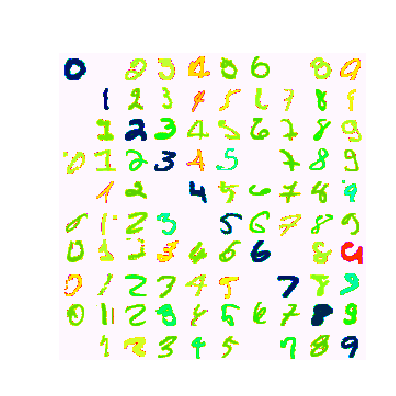 0 0 3 4 6 6 8 9
1 2 3 4 5 6 7 8 9
1 2 3 4 5 6 7 8 9
0 1 2 3 4 5 7 8 9
1 2 4 5 6 7 8 9
0 1 2 3 5 6 7 8 9
0 1 2 3 4 5 6 8 9
0 1 2 3 4 5 7 8 9
0 1 2 3 4 5 6 7 8 9
1 2 3 4 5 7 8 9